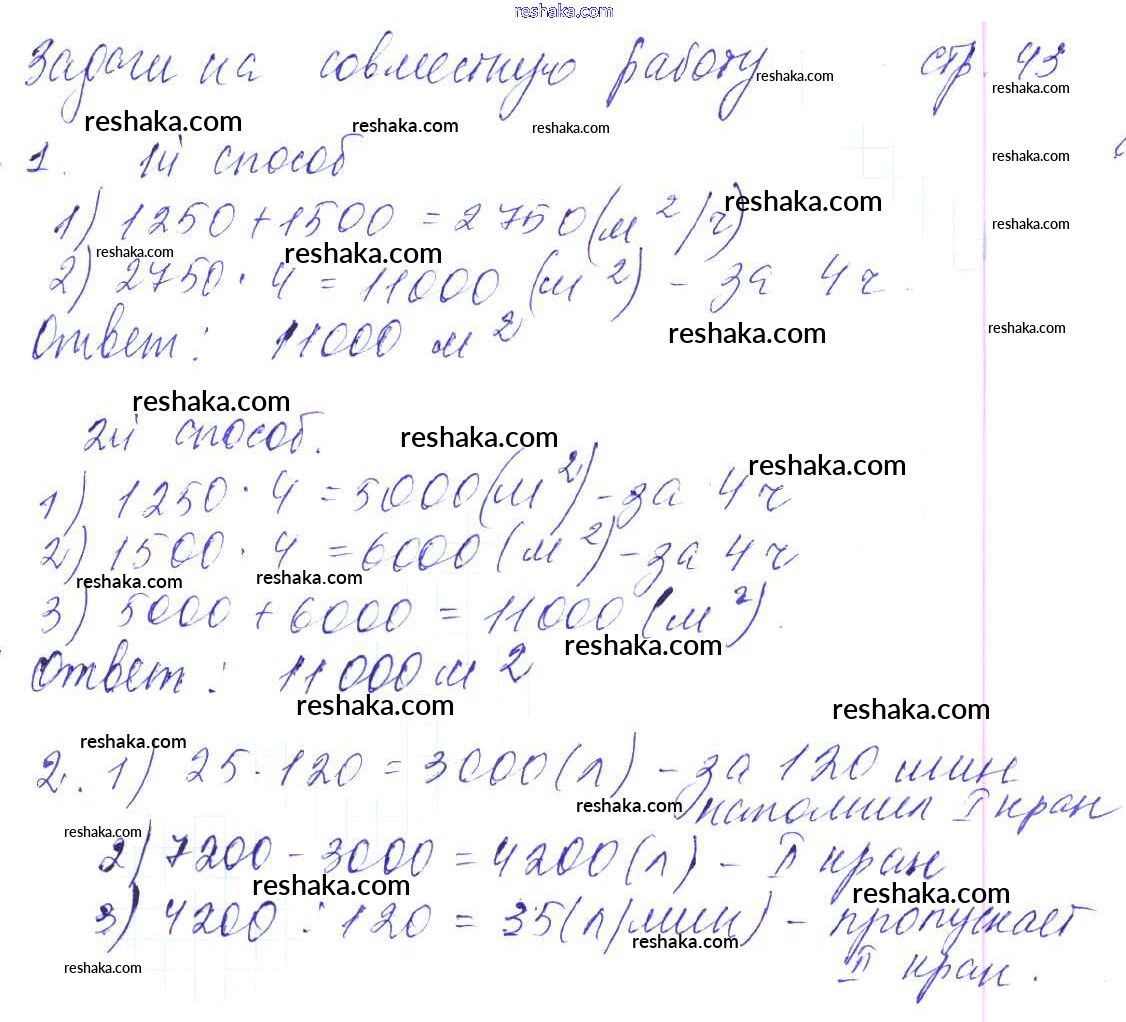 reshaka.com
Задачи на совместную работу reshaka.com стр. 43
reshaka.com
reshaka.com reshaka.com reshaka.com
1. 1й способ reshaka.com
1) 1250 + 1500 = 2750 (м²/ч) reshaka.com
reshaka.com
reshaka.com reshaka.com
2) 2750 · 4 = 11000 (м²) - за 4 ч.
Ответ: 11000 м² reshaka.com reshaka.com
reshaka.com
2й способ. reshaka.com
reshaka.com
1) 1250 · 4 = 5000 (м²) - за 4 ч
2) 1500 · 4 = 6000 (м²) - за 4 ч
reshaka.com reshaka.com
3) 5000 + 6000 = 11000 (м²).
reshaka.com
Ответ: 11000 м²
reshaka.com reshaka.com
reshaka.com
2. 1) 25 · 120 = 3000 (л) - за 120 мин
reshaka.com наполнил I кран
reshaka.com
2) 7200 - 3000 = 4200 (л) - II кран
reshaka.com reshaka.com
3) 4200 : 120 = 35 (л/мин) - пропускает
reshaka.com
reshaka.com II кран.